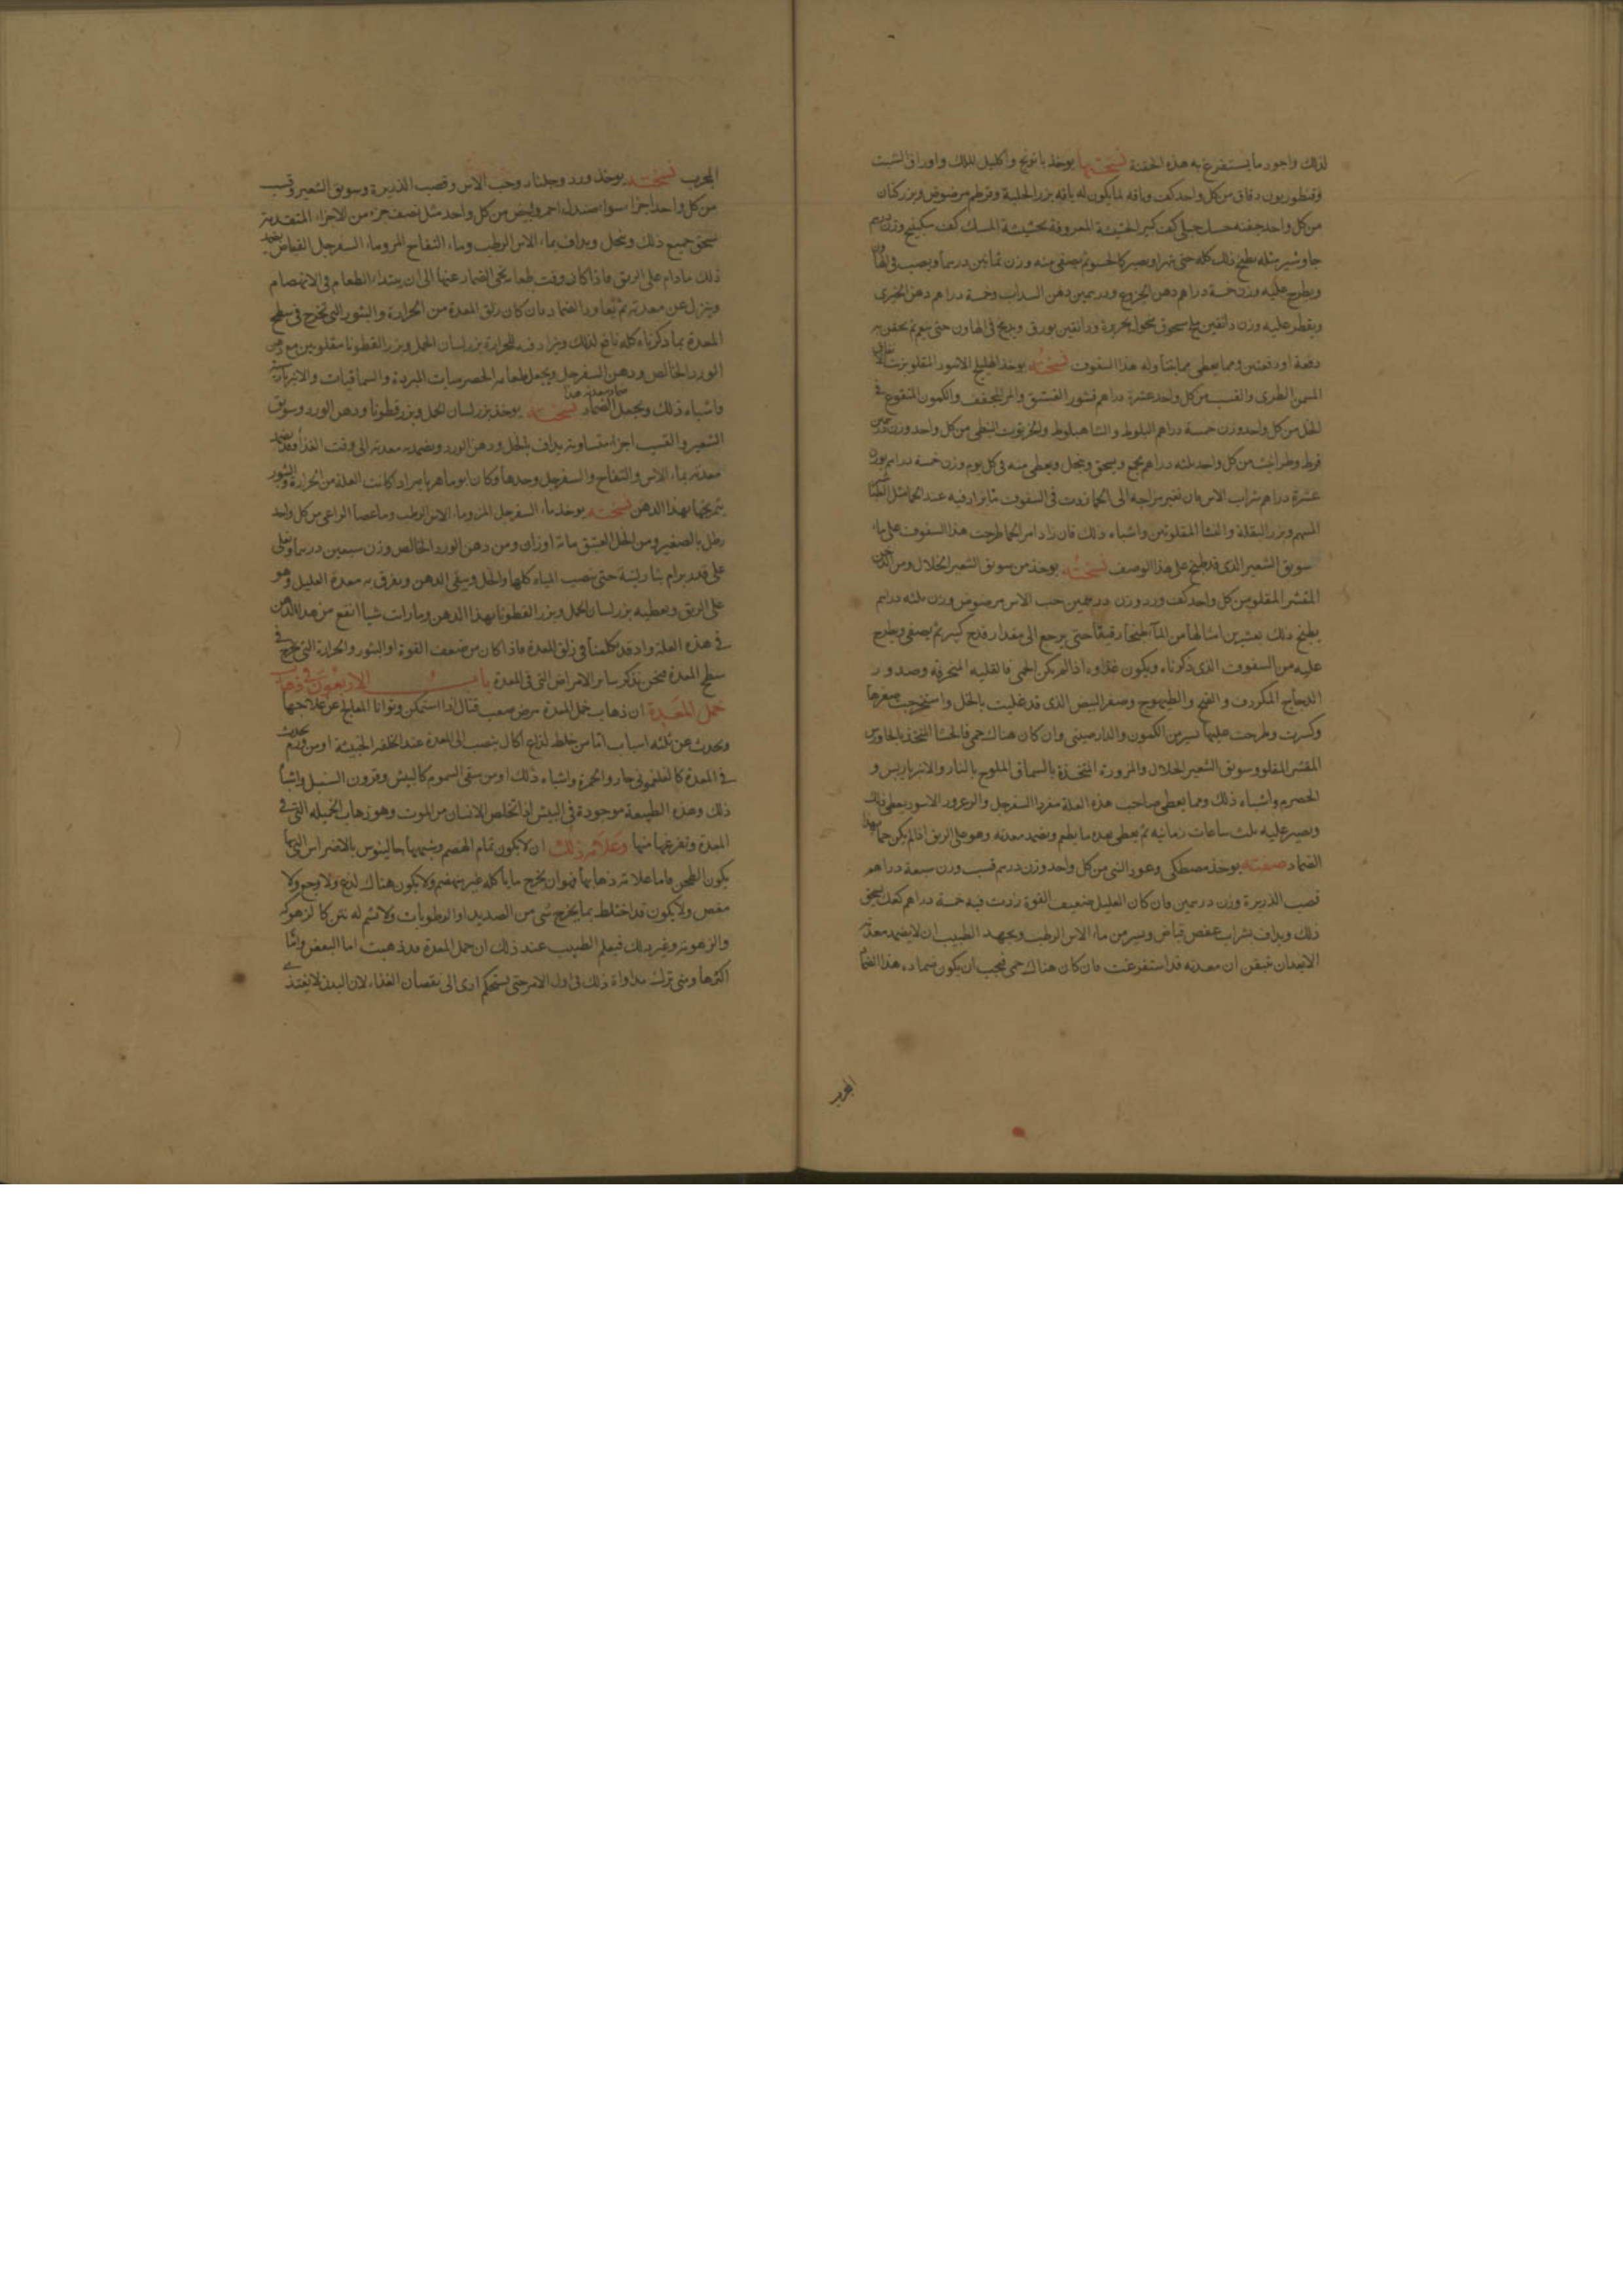 لذلك واجود ما يستفرغ به هذه الحقنة نسختها يوخذ بابونج واكليل الملك واوراق الشبت
وقنطوريون دقاق من كل واحد كف وباقه لما يكون له باقه بزر الحلبة وقرطم مرضوض وبزر كتان
من كل واحد حفنه حسك جبلى كف كبير الحشيشة المعروفة بحشيشة المسك كف سكبينج وزن درهم
جاوشير مثله يطبخ ذلك كله حتى يتهرا ويصير كالحسو ثم يصفى منه وزن ثمانين درهما ويصب فى الهاون
ويطرح عليه وزن خمسة دراهم دهن الخروع ودرهمين دهن السداب وخمسة دراهم دهن الخيرى
ويقطر عليه وزن دانقين ملح مسحوق منخول بحريرة ودانقين بورق ويدبج فى الهاون حتى ينعم ثم يحقن به
دفعة او دفعتين ومما يعطى مما يتناوله هذا السفوف نسخته يوخذ اهليلج الاسود المقلو بزيت
السمن الطرى والقسب من كل واحد عشرة دراهم قشور الفستق والمر المجفف والكمون المنقوع فى
الخل من كل واحد وزن خمسة دراهم البلوط والشاهبلوط والخرنوب النبطى من كل واحد وزن درهمين
قرط وطراثيث من كل واحد ثلثه دراهم يجمع ويسحق وينخل ويعطى منه فى كل يوم وزن خمسة دراهم بوزن
عشرة دراهم شراب الاس فان تغير مزاجه الى الحما زدت فى السفوف ما يزاد فيه عند الحما مثل الطباشير
المسهم وبزر البقلة والنشا المقلوتين واشباه ذلك فان زاد امر الحما طرحت هذا السفوف على ماء
سويق الشعير الذى قد طبخ على هذا الوصف نسخته يوخذ من سويق الشعير الخلال ومن الدخن
المقشر المقلو من كل واحد كف ورد وزن درهمين حب الاس مرضوض وزن ثلثه دراهم
يطبخ ذلك بعشرين امثالها من المآ طبخا رقيقا حتى يرجع الى مقدار قدح كبير ثم يصفى ويطرح
عليه من السفوف الذى ذكرناه ويكون غذاوه اذا لم يكن الحمى فالقليه المتحرقة وصدور
الدجاج المكررف والقبج والطيهوج وصفر البيض الذى قد غليت بالخل واستخرجت صفرتها
وكسرت وطرحت عليها يسير من الكمون والدارصينى وان كان هناك حمى فالحسا المتخذ بالجاورس
المقشر المقلو وسويق الشعير الخلال والمزورة المتخذة بالسماق المملوح بالنار والانبرباريس و
الحصرم واشباه ذلك ومما يعطى صاحب هذه العلة مفردا السفرجل والزعرور الاسود يعطى ذلك
ويصبر عليه ثلث ساعات زمانيه ثم يعطى بعده ما يطعم ويضمد معدته وهو على الريق اذا لم يكن حما بهذا
الضماد صفته يوخذ مصطكى وعود النى من كل واحد وزن درهم قسب وزن سبعة دراهم
قصب الذريرة وزن درهمين فان كان العليل ضعيف القوة زدت فيه خمسة دراهم كعك يسحق
ذلك ويداف بشراب عفص قباض ويسير من ماء الاس الرطب ويجهد الطبيب ان لا يضمد معدته
الا بعد ان يتيقن ان معدته قد استفرغت فان كان هناك حمى فيجب ان يكون ضماده هذا الضماد
المجرب
المجرب نسخته يوخذ ورد وجلنار وحب الاس وقصب الذريرة وسويق الشعير وقسب
من كل واحد اجزا سوا صندل احمر وابيض من كل واحد مثل نصف جزء من الاجزاء المتقدمة
يسحق جميع ذلك وينخل ويداف بماء الاس الرطب وماء التفاح المز وماء السفرجل القباض يضمد
ذلك مادام على الريق فاذا كان وقت طعامه ينحى الضماد عنها الى ان يبتداء الطعام فى الانهضام
وينزل عن معدته ثم يعاود الضماد فان كان زلق المعدة من الحرارة والبثور التى تخرج فى سطح
المعدة بما ذكرناه كله نافع لذلك ويزاد فيه للحرارة بزر لسان الحمل وبزر القطونا مقلوين مع دهن
الورد الخالص ودهن السفرجل ويجعل طعامه الحصرميات المبردة والسماقيات والانبرباريسية
واشباه ذلك ويجعل الضماد ضماد معدته هذا نسخته يوخذ بزر لسان الحمل وبزر قطونا ودهن الورد وسويق
الشعير والقسب اجزا متساوية يداف بالخل ودهن الورد ويضمد به معدته الى وقت الغذا وقد يضمد
معدته بماء الاس والتفاح والسفرجل وحدها وكان ابو ماهر يامر اذا كانت العلة من الحرارة والبثور
بتمريخها بهذا الدهن نسخته يوخذ ماء السفرجل المز وماء الاس الرطب وما عصا الراعى من كل واحد
رطل بالصغير ومن الخل العتيق مائة اوزان ومن دهن الورد الخالص وزن سبعين درهما ويغلى
على قدر برام بنار لينة حتى نضب المياه كلها والخل ويبقى الدهن ويعرق به معدة العليل وهو
على الريق ويعطيه بزر لسان الحمل وبزر القطونا بهذا الدهن وما رات شيا انفع من هذا الدهن
فى هذه العلة واذ قد تكلمنا فى زلق المعدة فاذا كان من ضعف القوة او البثور والحرارة التى تخرج فى
سطح المعدة فنحن نذكر سائر الامراض التى فى المعدة باب الاربعون فى ذهاب
خمل المعدة ان ذهاب خمل المعدة مرض صعب قتال اذا استمكن وتوانا المعالج عن علاجها
ويحدث عن ثلثه اسباب اما من خلط لذاع اكال ينصب الى المعدة عند الخلفه الخبيثة او من ورم يحدث
فى المعدة كالفلغمونى حار والحمرة واشباه ذلك او من سقى السموم كالبيش وقرون السنبل واشباه
ذلك وهذه الطبيعة موجودة فى البيش اذا تخلص الانسان من الموت وهو ذهاب الخميله التى فى
المعدة وتفرغها منها وعلامة ذلك ان لا يكون تمام الهضم وشبهها جالينوس بالاضراس التى بها
يكون الطحن فاما علامة ذهابها فهو ان يخرج ما ياكله غير منهضم ولا يكون هناك لذع ولا وجع ولا
مغص ولا يكون قد اختلط بما يخرج شى من الصديد او الرطوبات ولا تشم له نتن كالزهوكه
والزهومة وغير ذلك فيعلم الطبيب عند ذلك ان خمل المعدة قد ذهبت اما البعض واما
اكثرها ومتى ترك مداواة ذلك فى اول الامر حتى يستحكم ادى الى نقصان الغذاء لان البدن لا يغتذى